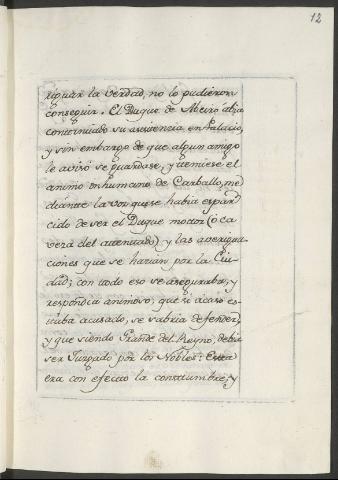 12
riguar la verdad, no lo pudieron
conseguir. El Duque de Abeiro avia
continuado su asistencia en Palacio,
y sin embargo de que algun amigo
le avisó se guardase, y temiese el
animo inhumano de Carballo, me
diante la voz que se habia espar
cido de ser el Duque motor (ó ca
veza del attentado) y las averigua-
ciones que se harian por la Ciu-
dad; con todo eso se aseguraba, y
respondia animoso; que si acaso es-
tuba acusado, se sabria defender,
y que siendo Grande del Reyno, debia
ser Juzgado por los Nobles: Esta
era con efecto la constumbre, y